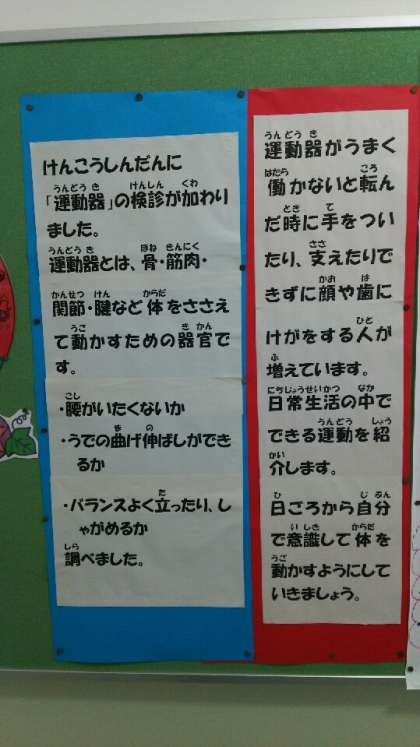 けんこうしんだんに
「運動器」の検診が加わり
ました。
運動器とは、骨・筋肉・
関節・腱など体をささえ
て動かすための器官で
す。
・腰がいたくないか
・うでの曲げ伸ばしができ
るか
・バランスよく立ったり、し
ゃがめるか
調べました。
運動器がうまく
働かないと転ん
だ時に手をつい
たり、支えたりで
きずに顔や歯に
けがをする人が
増えています。
日常生活の中で
できる運動を紹
介します。
日ころから自分
で意識して体を
動かすようにして
いきましょう。